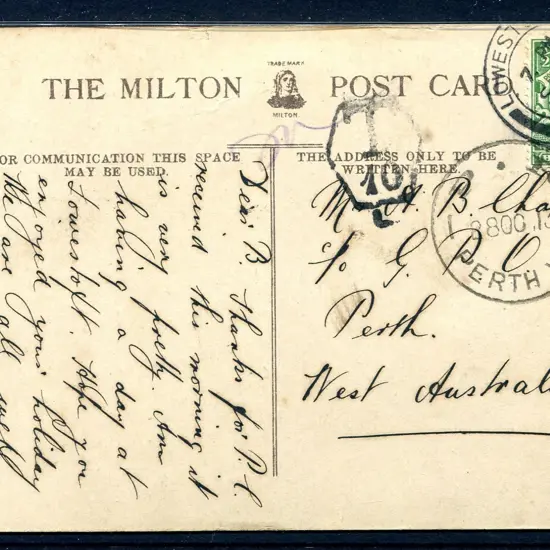 TRADE MARK
THE MILTON POST CARD
MILTON.
OR COMMUNICATION THIS SPACE
MAY BE USED.
THE ADDRESS ONLY TO BE
WRITTEN HERE.
Dear B. Thanks for P.C.
received this morning it
is very pretty. Am
having a day at
Lowestoft. Hope you
enjoyed your holiday
We are all well
T
10
L
LOWEST
28 OC 13
PERTH
A. B. Cha
c/o G. P. O
Perth.
West Austral